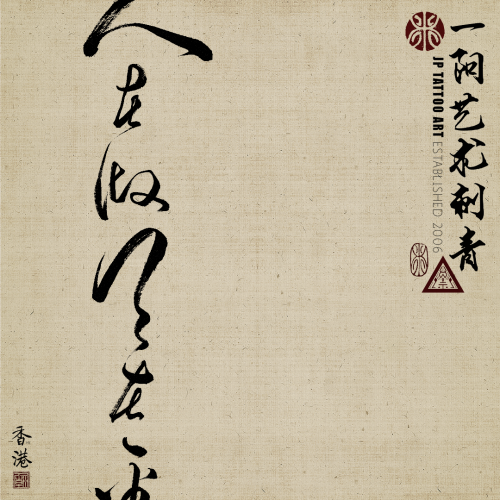 一阳艺术刺青
JP TATTOO ART ESTABLISHED 2006
人在做天在
香港